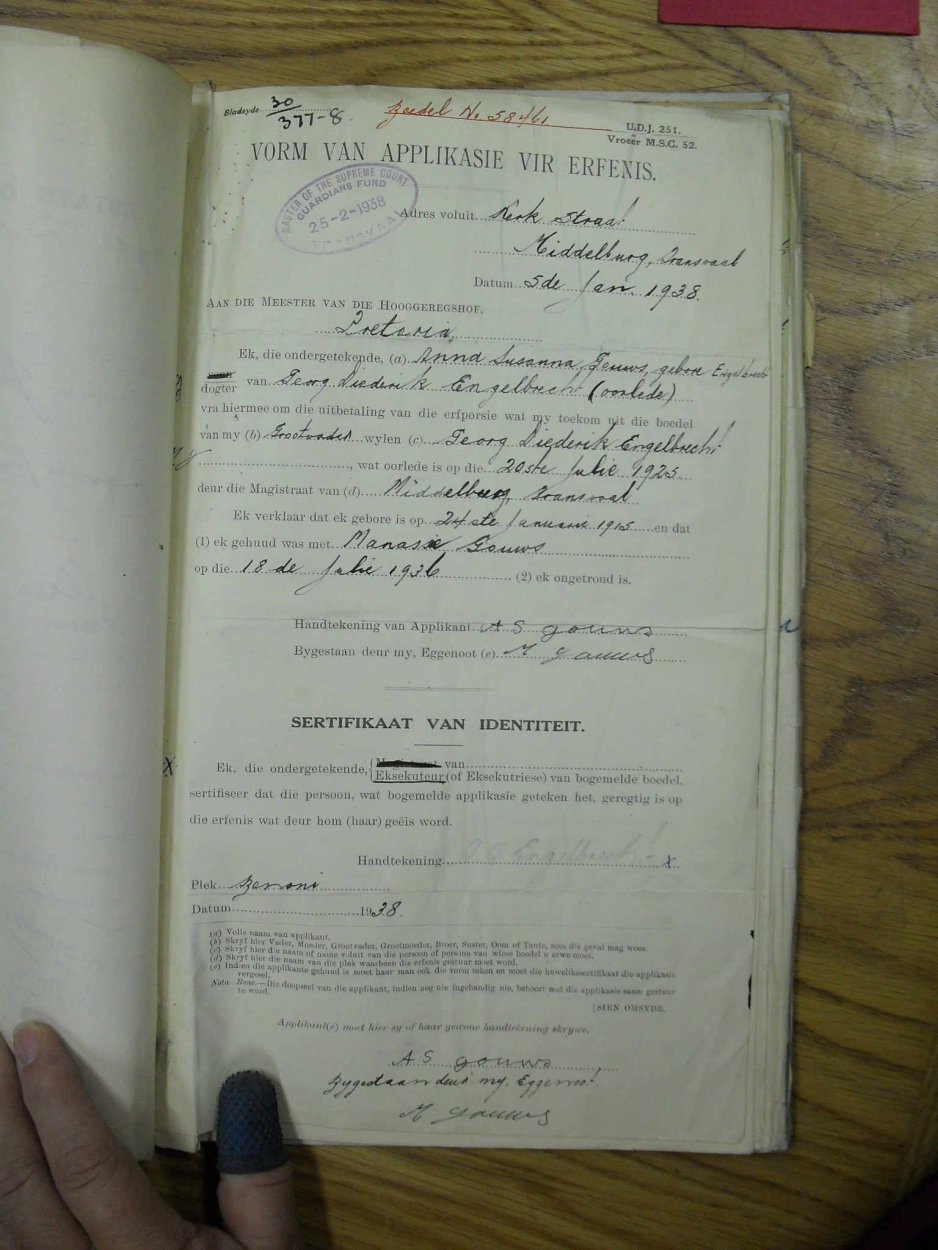 Bladsyde 30/377-8.
Boedel No. 58461.
U.D.J. 251.
Vroeër M.S.C. 52.
VORM VAN APPLIKASIE VIR ERFENIS.
MASTER OF THE SUPREME COURT
GUARDIANS FUND
25-2-1938
TRANSVAAL
Adres voluit Kerk Straat
Middelburg, Transvaal
Datum 5de Jan. 1938.
AAN DIE MEESTER VAN DIE HOOGGEREGSHOF.
Pretoria,
Ek, die ondergetekende, (a) Anna Susanna Gouws, gebore Engelbrecht
dogter van Georg Diederik Engelbrecht (oorlede)
vra hiermee om die uitbetaling van die erfporsie wat my toekom uit die boedel
van my (b) Grootvader wylen (c) Georg Diederik Engelbrecht
, wat oorlede is op die 20ste Julie 1925.
deur die Magistraat van (d) Middelburg, Transvaal
Ek verklaar dat ek gebore is op 24ste Januarie 1915 en dat
(1) ek gehuud was met Manasie Gouws
op die 18de Julie 1936 (2) ek ongetroud is.
Handtekening van Applikant. A S Gouws
Bygestaan deur my, Eggenoot (e) M Gouws
SERTIFIKAAT VAN IDENTITEIT.
X
Ek, die ondergetekende, { Magistraat van
Eksekuteur (of Eksekutriese) van bogemelde boedel,
sertifiseer dat die persoon, wat bogemelde applikasie geteken het, geregtig is op
die erfenis wat deur hom (haar) geëis word.
Handtekening Engelbrecht x
Plek Benoni
Datum 1938.
(a) Volle naam van applikant.
(b) Skryf hier Vader, Moeder, Grootvader, Grootmoeder, Broer, Suster, Oom of Tante, soos die geval mag wees.
(c) Skryf hier die naam of name voluit van die persoon of persone van wiese boedel u erwe moet.
(d) Skryf hier die naam van die plek waarheen die erfenis gestuur moet word.
(e) Indien die applikante gehuud is moet haar man ook die vorm teken en moet die huweliksertifikaat die applikasie
vergesel.
Nota Bene.—Die doopseel van die applikant, indien nog nie ingehandig nie, behoort met die applikasie saam gestuur
te word.
[SIEN OMSYDE.
Applikant(e) moet hier sy of haar gewone handtekening skrywe.
A S Gouws
Bygestaan deur my, Eggenoot.
M Gouws